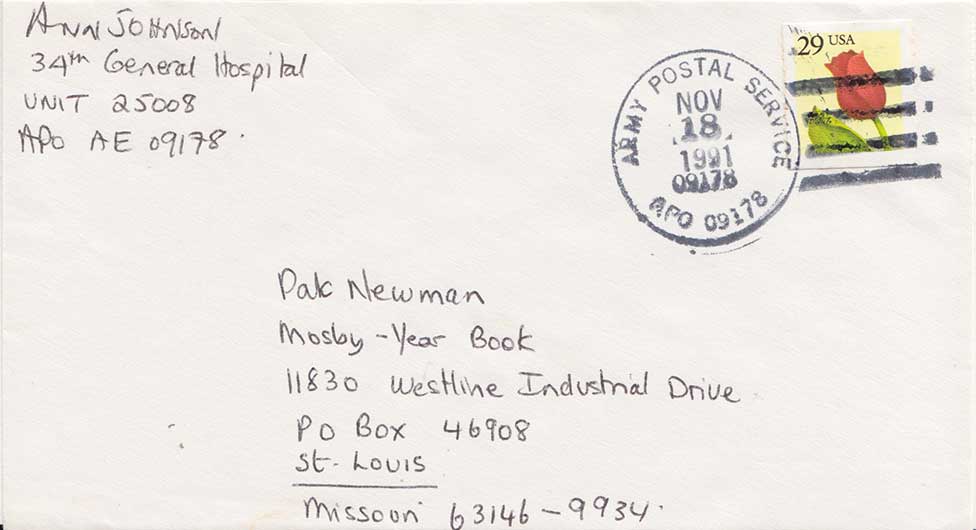 Ann Johnson
34th General Hospital
UNIT 25008
APO AE 09178.
29 USA
ARMY POSTAL SERVICE
NOV
18
1991
09178
APO 09178
Pak Newman
Mosby-Year Book
11830 Westline Industrial Drive
PO Box 46908
St. Louis
Missouri 63146-9934.